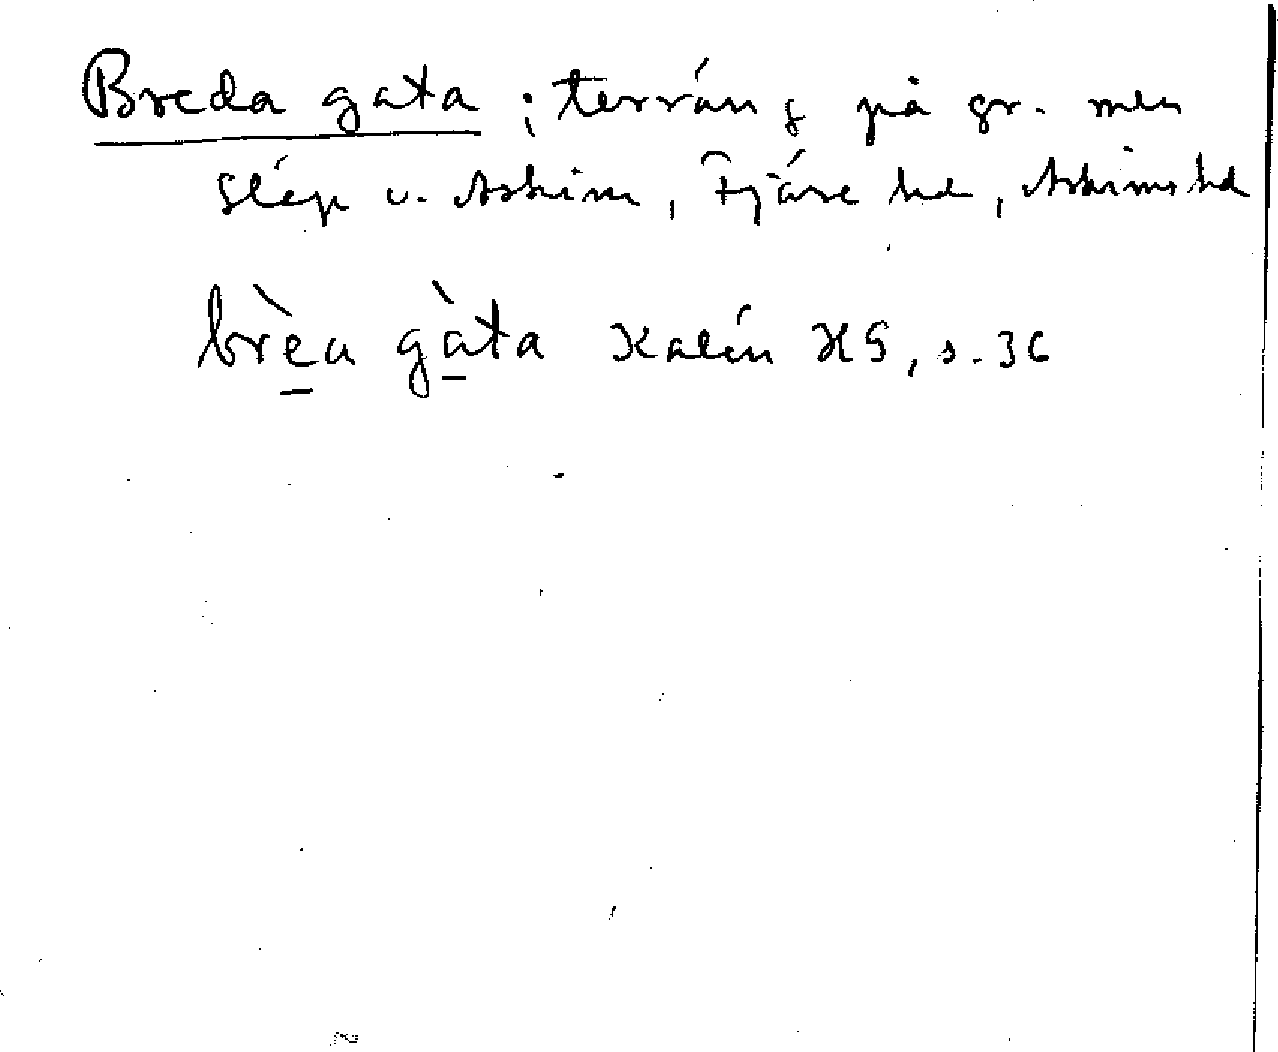 Breda gata ; terräng på gr. mellan
Släp o. Askim, Fjäre hd, Askims hd
brèa gàta Kalén HS, s. 36